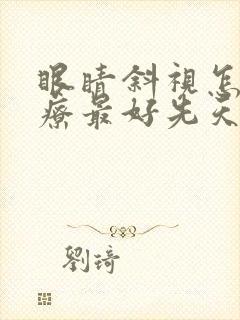 眼睛斜視怎
療最好先天
劉琦